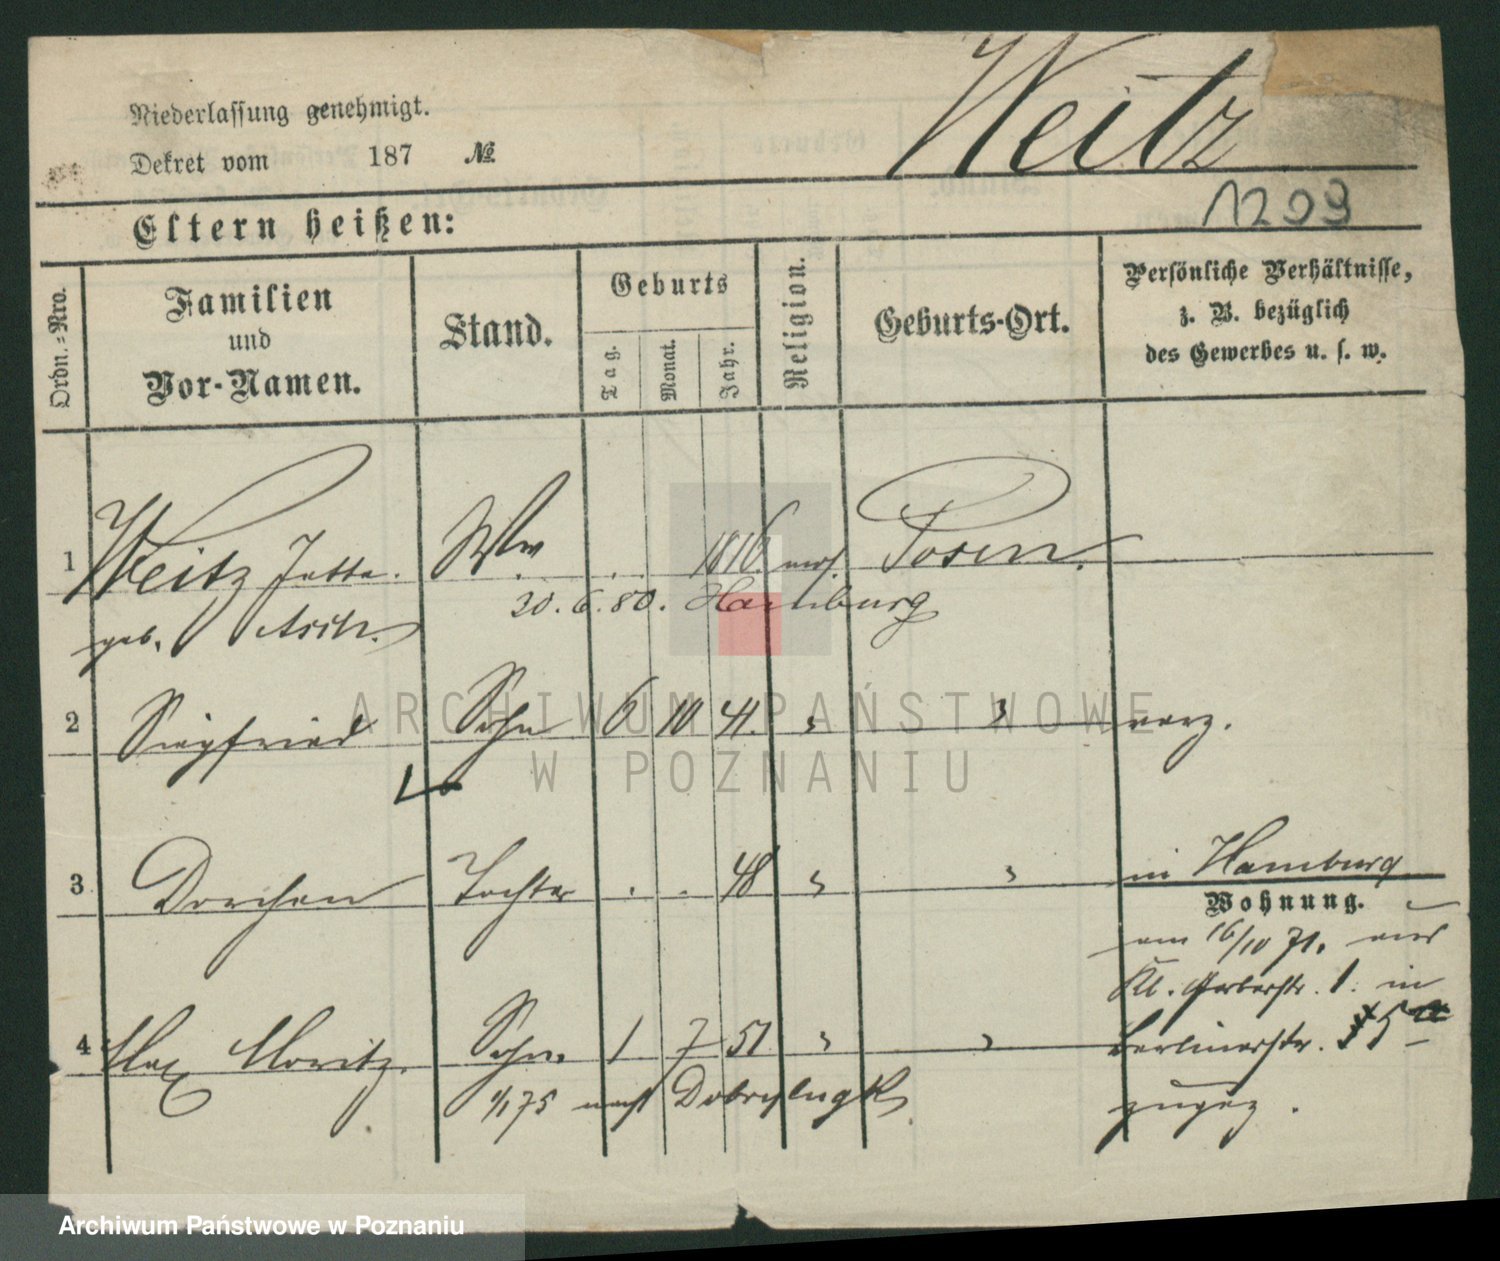 Weitz
Niederlassung genehmigt.
Dekret vom 187 №
1209
Eltern heißen:
Ordn.=Nro.
Familien
und
Vor-Namen.
Stand.
Geburts
Tag.
Monat.
Jahr.
Religion.
Geburts-Ort.
Persönliche Verhältnisse,
z. B. bezüglich
des Gewerbes u. s. w.
1 Weitz Jette. Ww 1816. mos. Posen.
geb. Asch.
20. 6. 80. Hamburg
2 Siegfried Sohn 6 10 41. " " verz.
3 Dorchen Tochter 48 " " in Hamburg
Wohnung.
am 16/10 71. aus
Kl. Gerberstr. 1. in
4 Max Moritz. Sohn 1 7 51 " " Berlinerstr.
1/1 75 nach
zugez.
ARCHIWUM PAŃSTWOWE
W POZNANIU
Archiwum Państwowe w Poznaniu